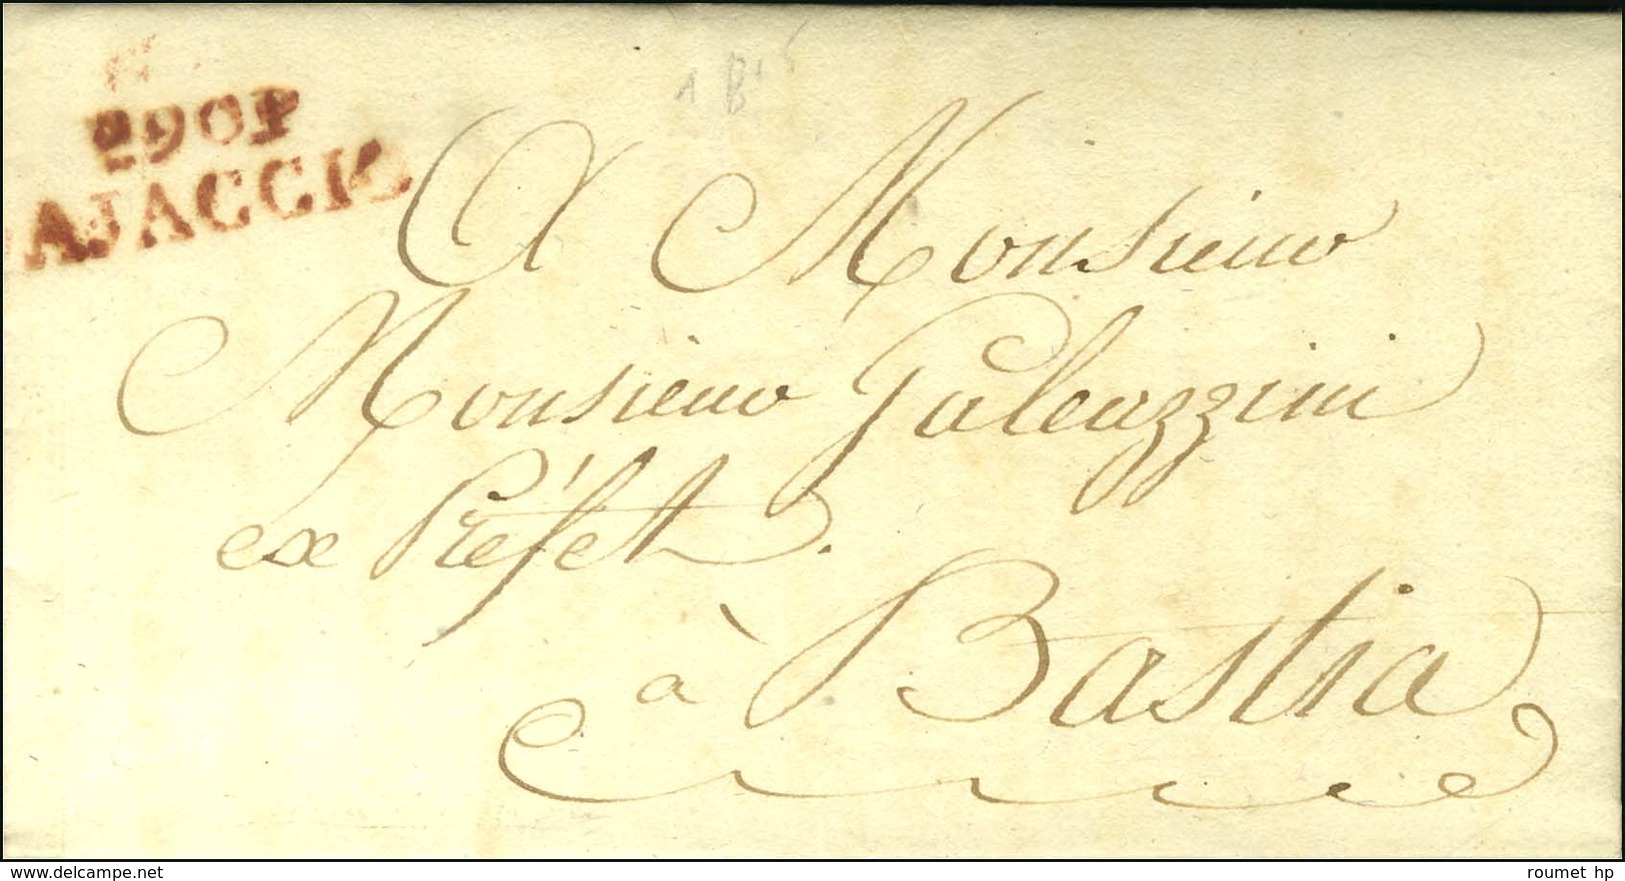 1 B
2906P
AJACCIO
A Monsieur
Monsieur Galeazzini
ex Préfet.
à Bastia
www.delcampe.net
roumet hp